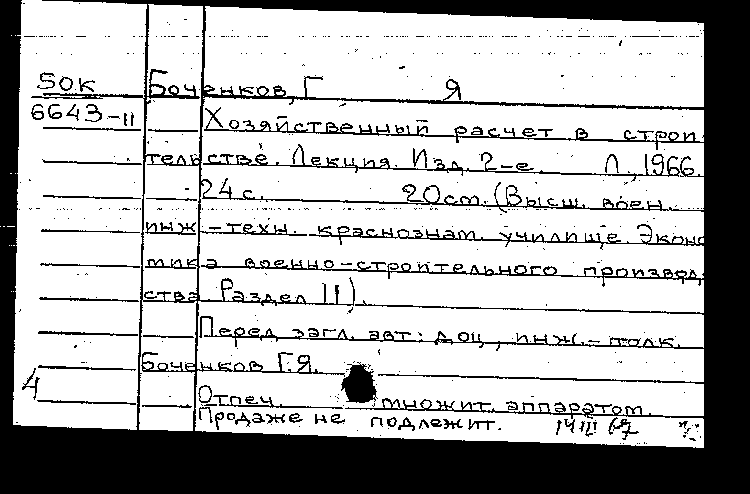 50К Боченков, Г Я
6643-II Хозяйственный расчет в строи
тельстве. Лекция. Изд. 2-е. Л., 1966.
24 с. 20 см. (Высш. воен.
инж-техн. краснознам. училище. Эконо
мика военно-строительного производ-
ства Раздел II).
Перед загл. авт: доц, инж.-полк.
Боченков Г.Я.
4
Отпеч. множит. аппаратом.
Продаже не подлежит. 14 III 67